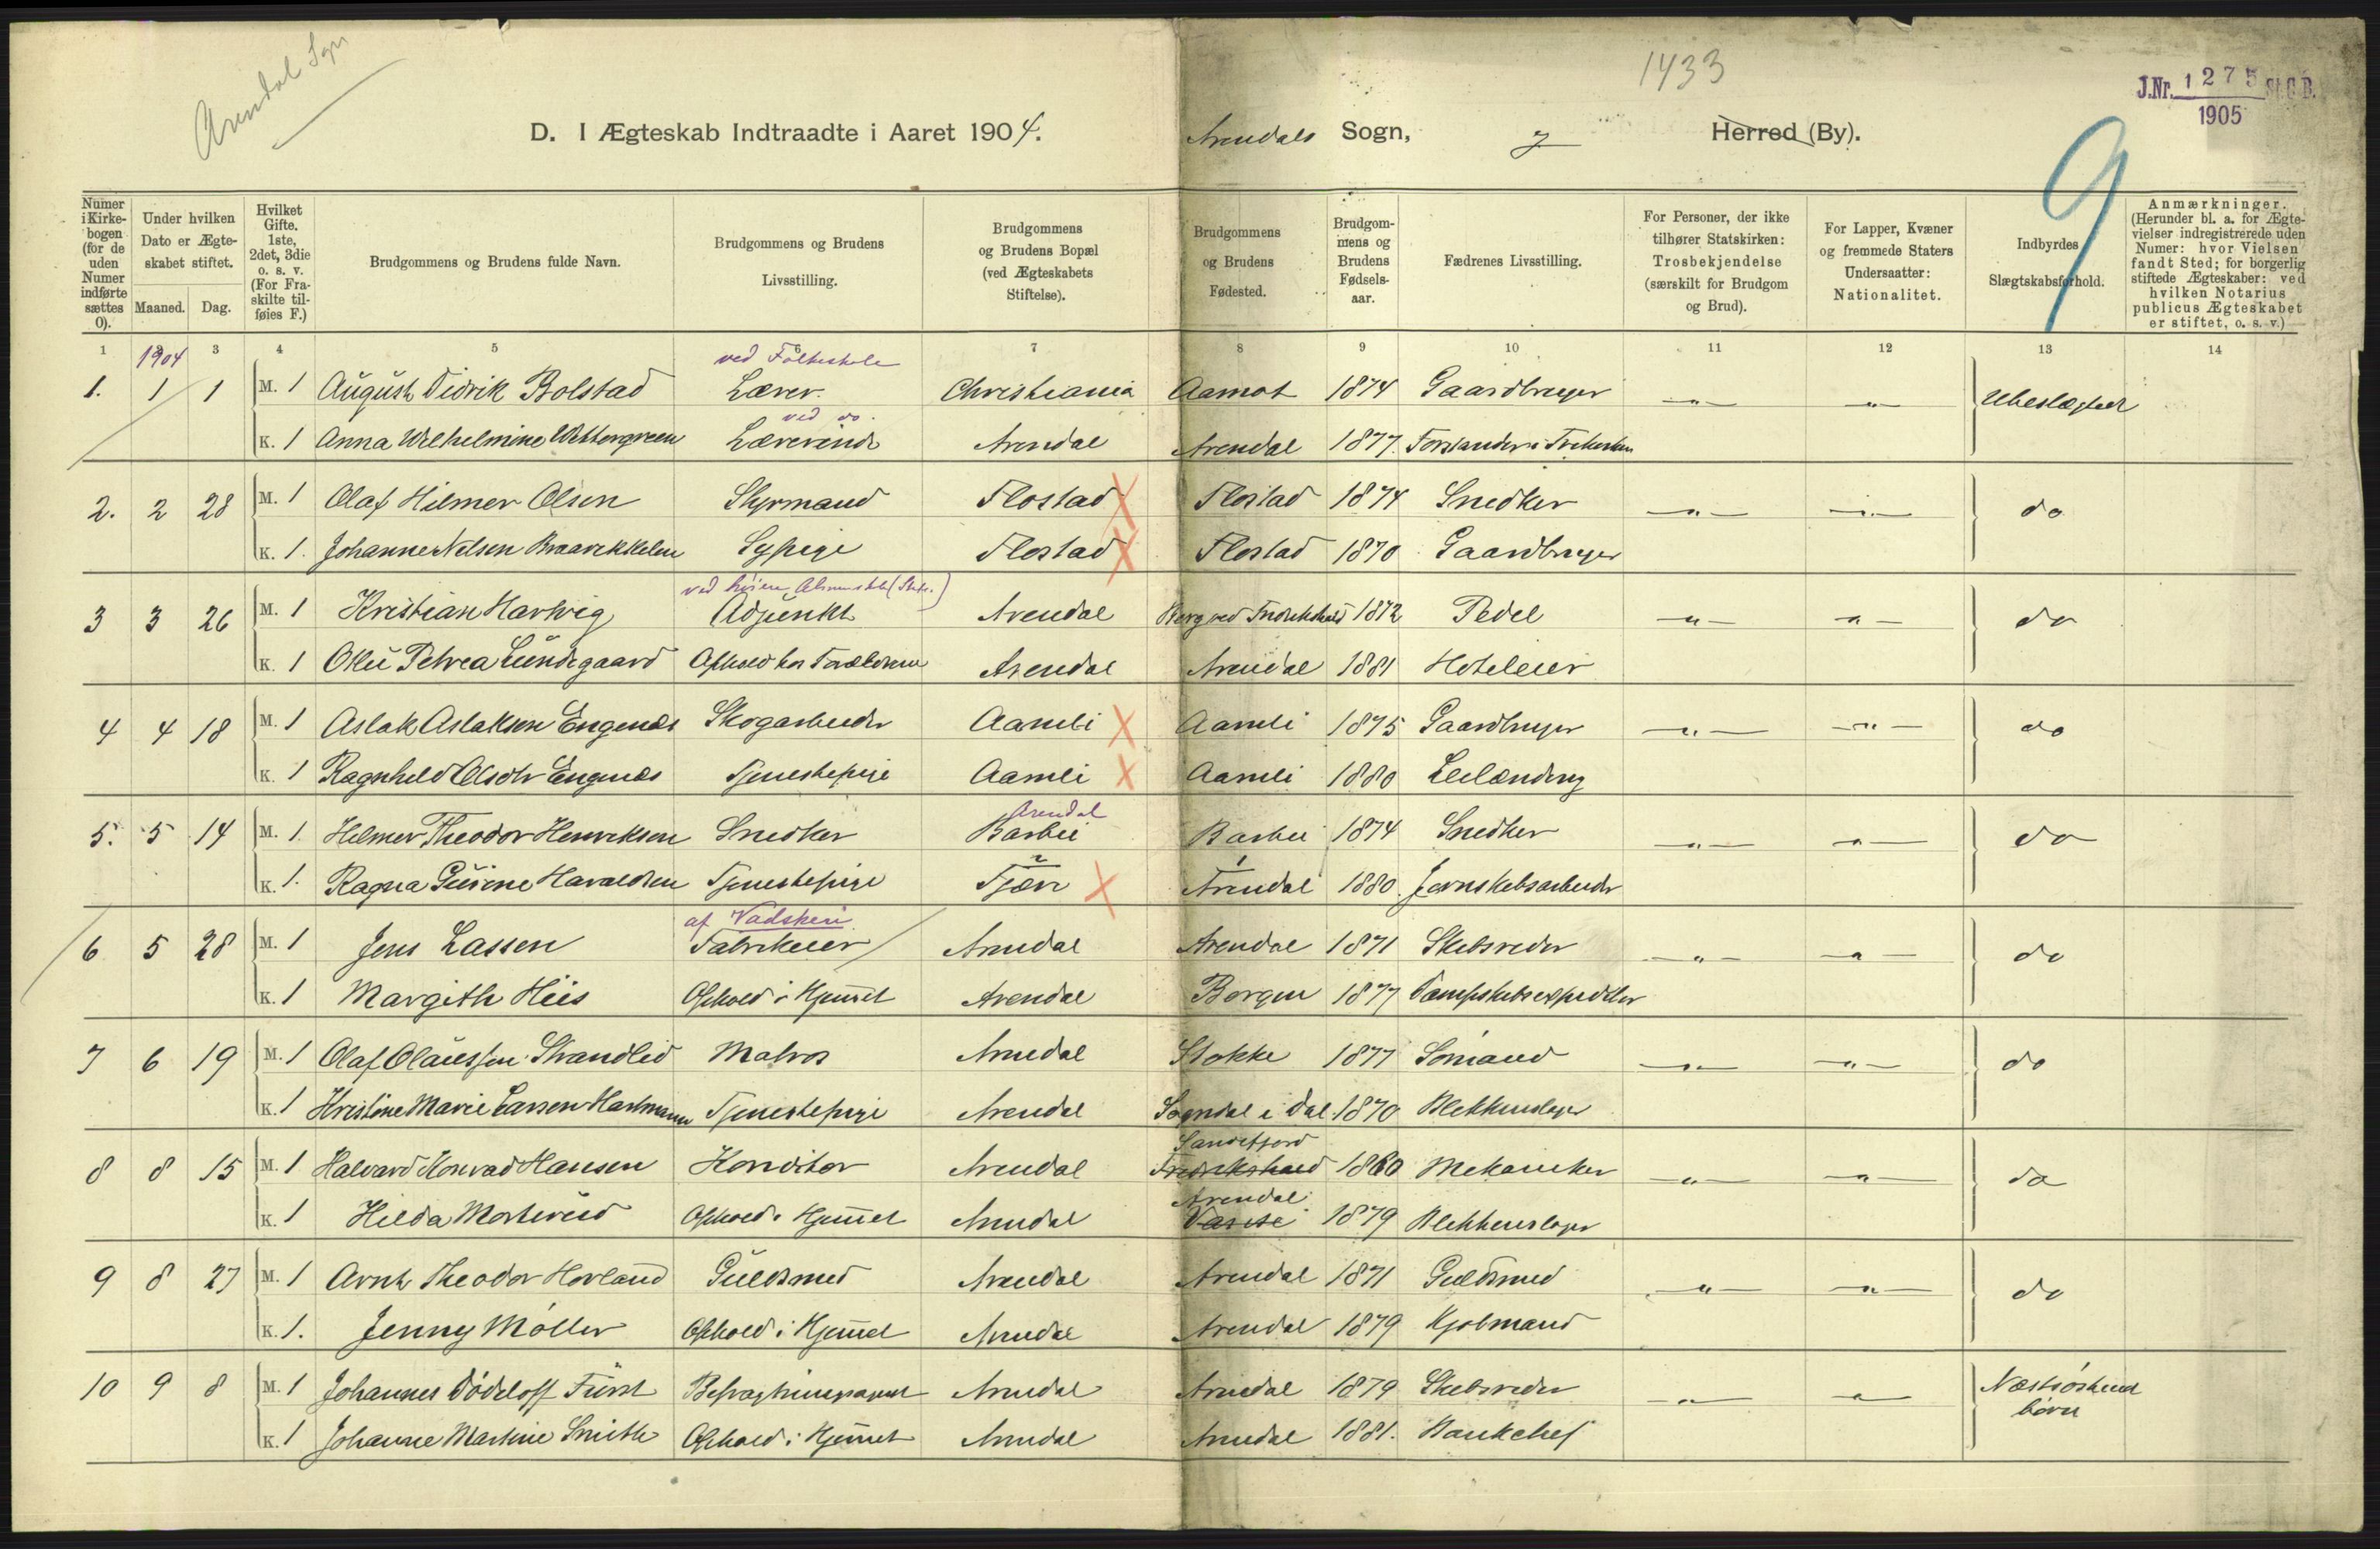 Arendal Sogn
1433
J.Nr. 1275 St.C.B.
1905
9
D. I Ægteskab Indtraadte i Aaret 1904.
Arendals Sogn, Herred (By).
Numer i Kirke-bogen (for de uden Numer indførte sættes 0).
Under hvilken Dato er Ægte-skabet stiftet.
Maaned. Dag.
Hvilket Gifte. 1ste, 2det, 3die o. s. v. (For Fra-skilte til-føies F.)
Brudgommens og Brudens fulde Navn.
Brudgommens og Brudens Livsstilling.
Brudgommens og Brudens Bopæl (ved Ægteskabets Stiftelse).
Brudgommens og Brudens Fødested.
Brudgom-mens og Brudens Fødsels-aar.
Fædrenes Livsstilling.
For Personer, der ikke tilhører Statskirken: Trosbekjendelse (særskilt for Brudgom og Brud).
For Lapper, Kvæner og fremmede Staters Undersaatter: Nationalitet.
Indbyrdes Slægtskabsforhold.
Anmærkninger. (Herunder bl. a. for Ægte-vielser indregistrerede uden Numer: hvor Vielsen fandt Sted; for borgerlig stiftede Ægteskaber: ved hvilken Notarius publicus Ægteskabet er stiftet, o. s. v.)
1 2 3 4 5 6 7 8 9 10 11 12 13 14
1904
ved Folkeskole
1. 1 1 M. 1 August Didrik Bolstad Lærer Christiania Aamot 1874 Gaardbruger — " — — " — Ubeslægtede
ved do.
K. 1 Anna Wilhelmine Wettergreen Lærerinde Arendal Arendal 1877. Forstander i
2. 2 28 M. 1 Olaf Hilmer Olsen Styrmand Flostad X Flostad 1874 Snedker — " — — " — do
K. 1. Johanne Nelsen Flostad X Flostad 1870 Gaardbruger
Sypige
ved høiere Almenskole (Stats.)
3 3 26 M. 1 Kristian Hartvig Adjunkt Arendal Berg ved Fredrikshald 1872 Pedel — " — — " — do
K. 1 Petrea Lundegaard Ophold hos Forældrene Arendal Arendal 1881 Hoteleier
4 4 18 M. 1 Aslak Aslaksen Engenæs Skogarbeider Aamli X Aamli 1875 Gaardbruger — " — — " — do
K. 1 Ragnhild Olsdtr Engenæs Tjenestepige Aamli X Aamli 1880 Leilænding
Arendal
5. 5 14 M. 1. Helmer Theodor Henriksen Snedker Barbu Barbu 1874 Snedker — " — — " — do
K. 1. Ragna Gurine Haraldsen Tjenestepige X Arendal 1880. Jernskibsarbeider
af Vadskeri
6 5 28 M. 1 Jens Lassen Fabrikeier Arendal Arendal 1871 Skibsreder — " — — " — do
K. 1 Margith Ophold i Hjemmet Arendal Bergen 1877 Dampskibsexpeditør
7 6 19 M. 1 Olaf Olaussen Strandlid Matros Arendal Stokke 1877 Sømand — " — — " — do
K. 1 Kristine Marie Larsen Hartmann Tjenestepige Arendal Sogndal i Dal. 1870 Blikkenslager
Sandefjord
8 8 15 M. 1 Halvard Konrad Hansen Konditor Arendal Fredrikshald 1880 Mekaniker — " — — " — do
Arendal
K. 1 Hilda Morterud Ophold i Hjemmet Arendal 1879 Blikkenslager
9 8 27 M. 1 Arnt Theodor Hovland Guldsmed Arendal Arendal 1871 Guldsmed — " — — " — do
K. 1. Jenny Møller Ophold i Hjemmet Arendal Arendal 1879 Kjøbmand
10 9 8 M. 1 Johannes Dødeloff Fürst Befragtningsagent Arendal Arendal 1879 Skibsreder — " — — " — Næstsøskend
børn
K. 1 Johanne Martine Smith Ophold i Hjemmet Arendal Arendal 1881. Bankchef